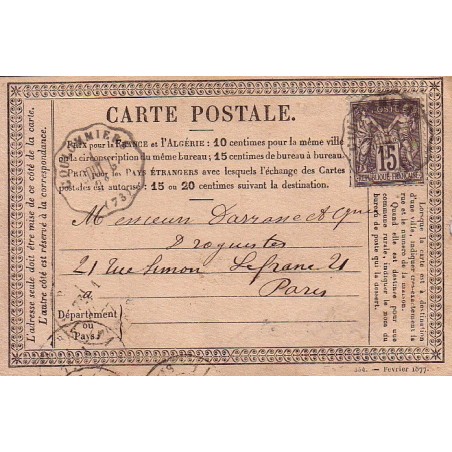 CARTE POSTALE.
Prix pour la FRANCE et l'ALGÉRIE : 10 centimes pour la même ville
ou la circonscription du même bureau ; 15 centimes de bureau à bureau.
Prix pour les PAYS ÉTRANGERS avec lesquels l'échange des Cartes
postales est autorisé : 15 ou 20 centimes suivant la destination.
COULOMMIERS
(73)
15
REPUBLIQUE FRANÇAISE
Monsieur Darrasse et
Droguistes
21 Rue Simon Lefranc 21
Paris
à
Département
ou
Pays
L'adresse seule doit être mise de ce côté de la carte.
L'autre côté est réservé à la correspondance.
Lorsque la carte est à destination
d'une ville, indiquer très-exactement la
rue et le numéro de la maison.
Quand elle est destinée pour une
commune rurale, indiquer le nom du
bureau de poste qui la dessert.
Février 1877.